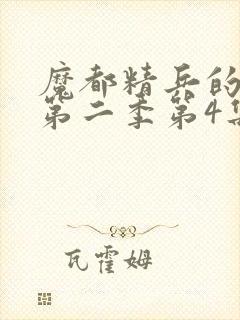 魔都精兵的
第二季第4集
瓦霍姆